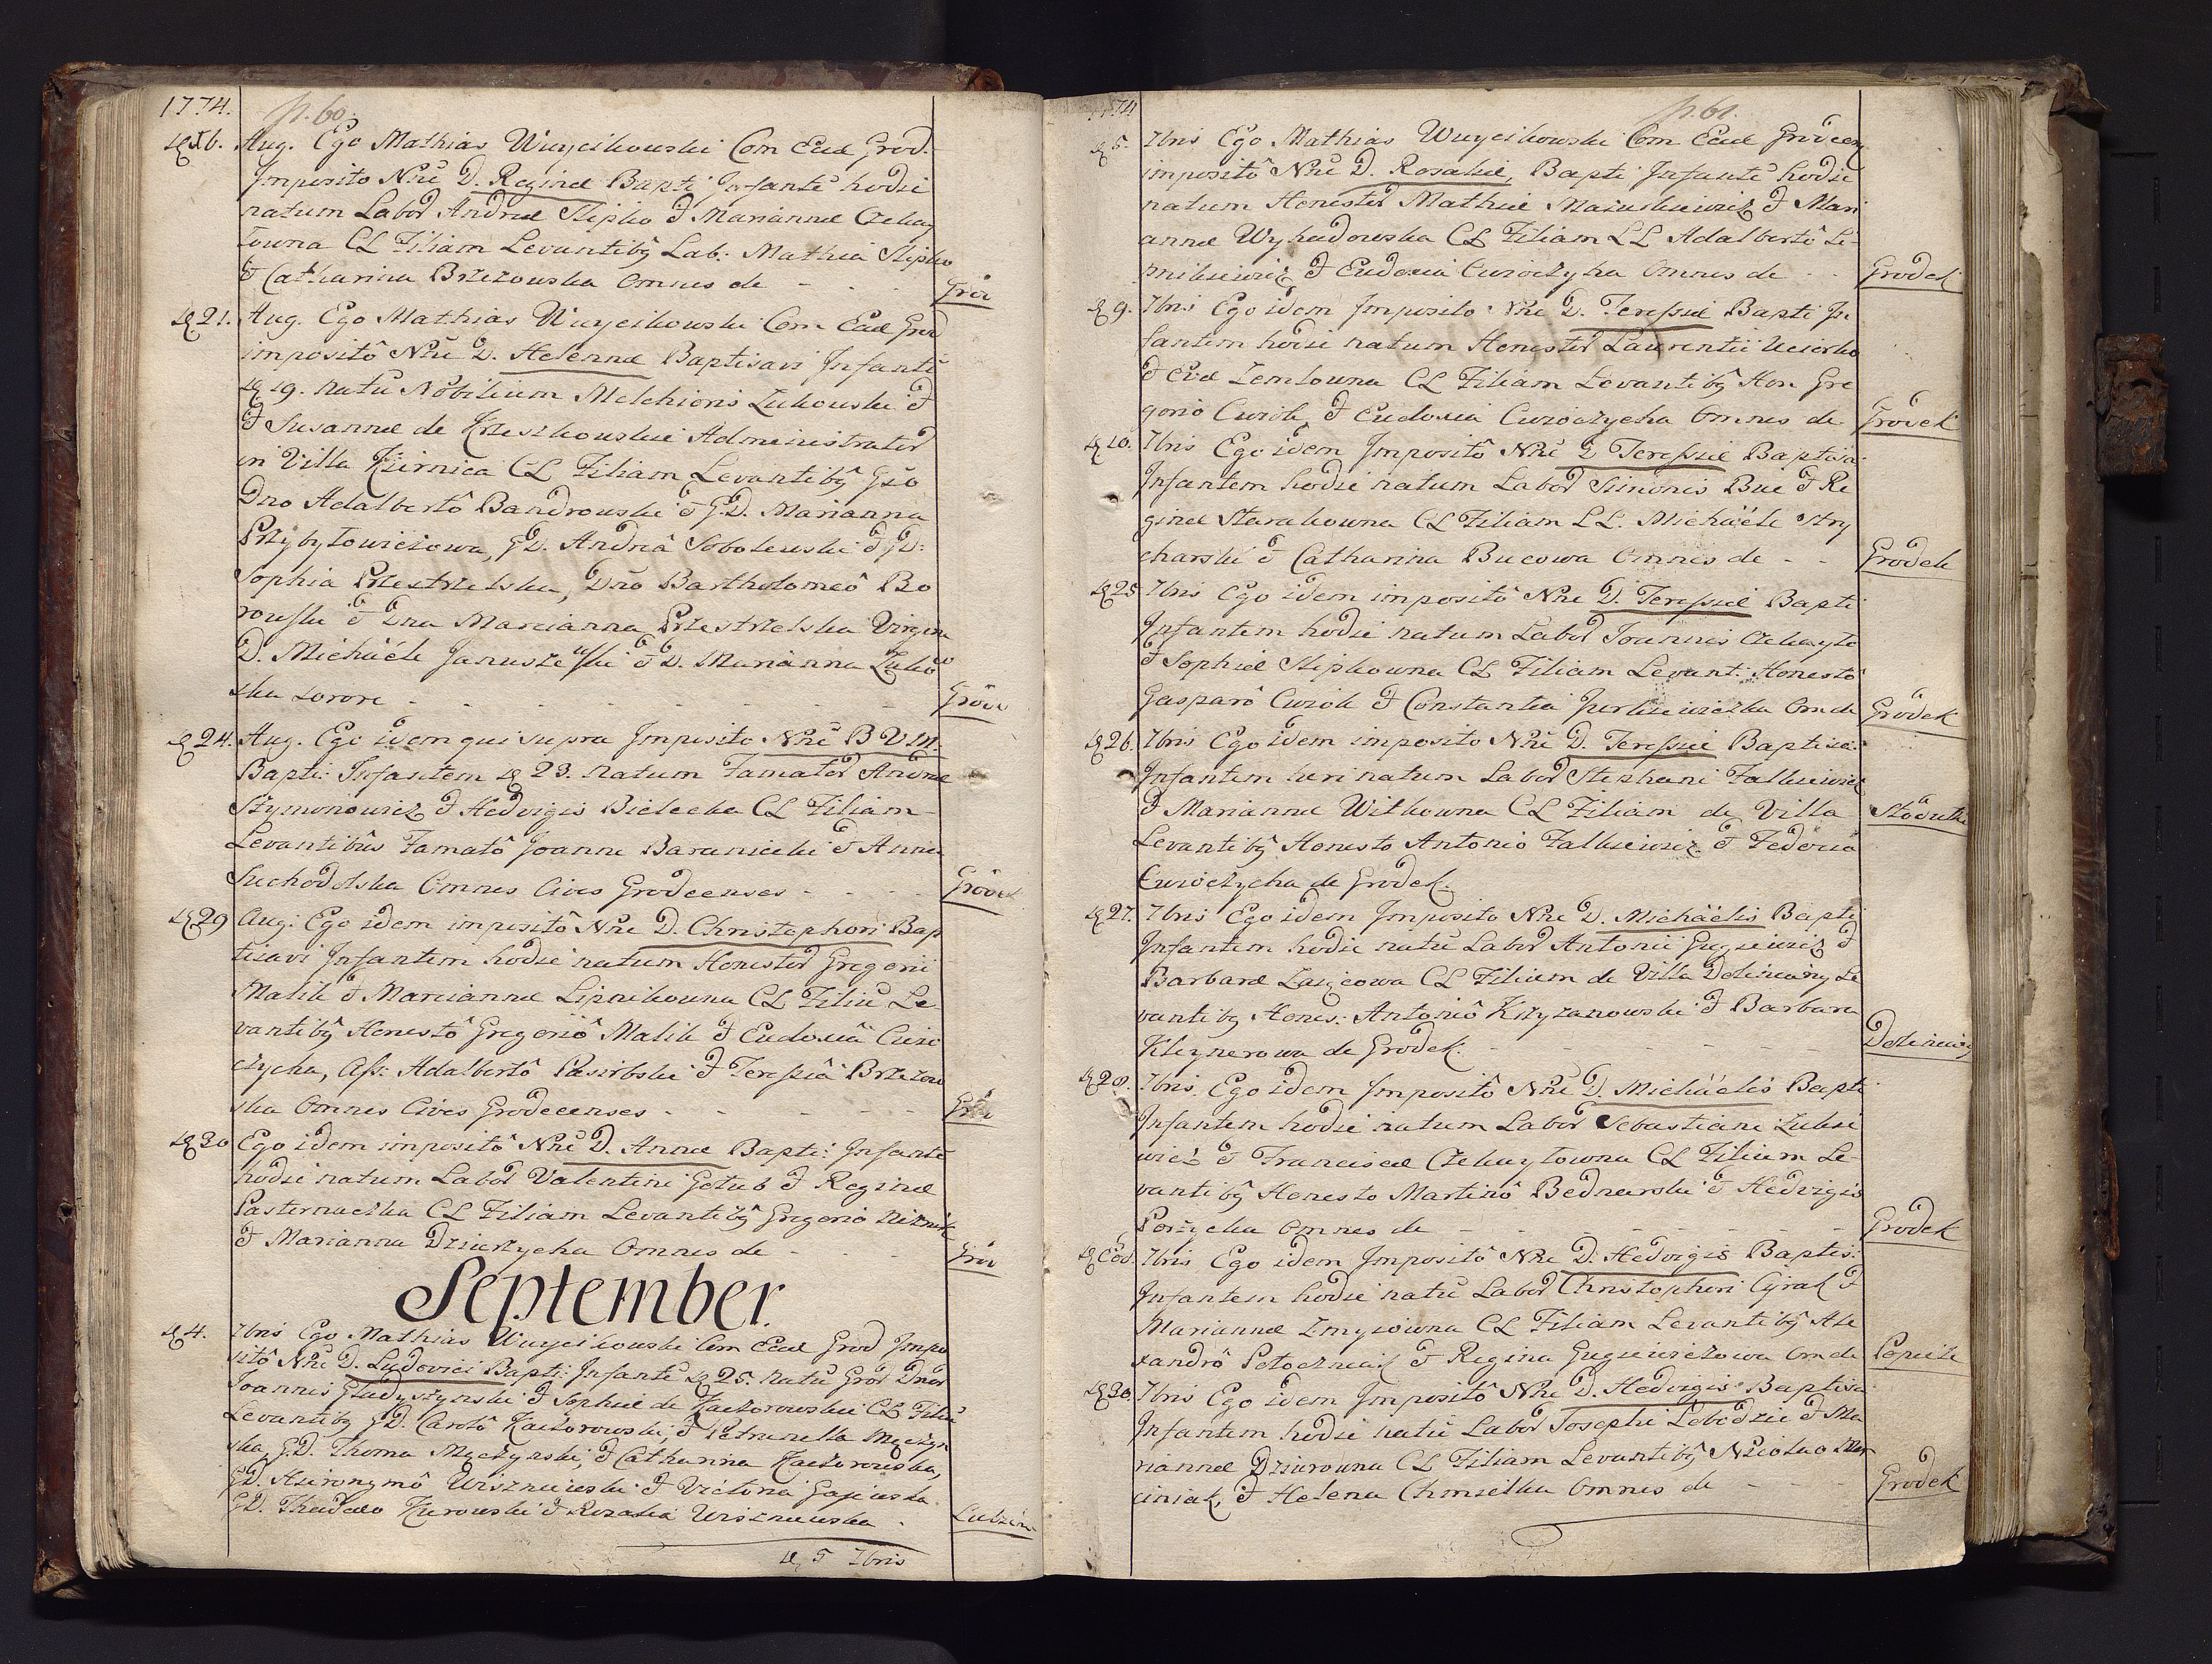 1774. p. 60.
d 16. Aug. Ego Mathias Wuycikowski Com Eccl Grod.
Imposito Nñe D. Reginæ Bapti Infantẽ hodie
natum Labor Andreæ Slipko & Mariannæ Czekay
towna CL Filiam Levantibg Lab: Mathia Slipko
& Catharina Brzezowska Omnes de - - - Gro
d 21. Aug. Ego Mathias Wuycikowski Com Eccl Grod
impositô Nñe D. Helennæ Baptisavi Infantẽ
d 19. natũ Nobilium Melchioris Zukowski &
& Susannæ de Krzeszkowskie Administrator
in Villa Kiernica CL Filiam Levantibg Gso
Dno Adalbertô Bandrowski & G.D. Marianna
Przybyłowiczowa, GD. Andreâ Sobolewski & GD:
Sophia Przestrzelska, Dño Bartholomeô Bo
rowski & Dna Marcianna Przestrzelska Virgine
D. Michäële Januszewski & D. Marianna Zuko
ska sorore - - - - - - Gród
d 24. Aug. Ego idem qui supra Imposito Nñe B V M.
Bapti: Infantem d 23. natum Famator Andreæ
Szymonowicz & Hedvigis Bielecka CL Filiam
Levantibus Famatô Joanne Baraniecki & Anna
Suchodolska Omnes Cives Grodecenses - - - Gródek
d 29 Aug: Ego idem impositô Nñe D. Christophori Bap
tisavi Infantem hodie natum Honestor Gregorii
Malik & Marciannæ Lipnikowna CL Filiũ Le
vantibg Honestô Gregoriô Malik & Eudoxiâ Cwio
czycha, Ass: Adalbertô Pasirbski & Teressiâ Brzezow
ska Omnes Cives Grodecenses - - - Gró
d 30 Ego idem impositô Nñe D. Annæ Bapti: Infantẽ
hodie natum Labor Valentini Gołub & Reginæ
Pasternaczka CL Filiam Levantibg Gregorio
& Marianna Dziurzycha Omnes de - - - Gro
September.
d 4. 7bris Ego Mathias Wuycikowski Com Eccl Grod Impo
sitô Nñe D. Ludovici Bapti: Infantẽ d 25. natũ Gror Dnor
Joannis Gładyszyński & Sophiæ de Kaczorowskie CL Filiũ
Levantibg GD. Carolô Kaczorowski, & Petrunella Męczyn
ska, G.D. Thoma Męczyński, & Catharina Kaczorowska,
GD. Hieronymô Wiszniewski & Victoria Gajewska
GD. Thadæo Kurowski & Rozalia Wiszniewska. Lubień
d 5 7bris
1774 p. 61.
d 5. 7bris Ego Mathias Wuycikowski Com Eccl Grodecen
impositô Nñe D. Rosaliæ, Bapti Infantẽ hodie
natum Honestor Mathiæ Matuskiewicz & Mari
annæ Wyhadowska CL Filiam LL Adalbertô Li-
pnikiewicz & Eudoxia Cwioczycha Omnes de - - Grodek
d 9. 7bris Ego idem Imposito Nñe D. Teressiæ Bapti In
fantem hodie natum Honestor Laurentii
& Evæ Zemlowna CL Filiam Levantibg Hon. Gre
gorio Cwiok & Eudoxia Cwioczycha Omnes de Grodek
d 10. 7bris Ego idem Impositô Nñe D Teressiæ Baptisa:
Infantem hodie natum Labor Simonis Buc & Re
ginæ Starakowna CL Filiam LL. Michäële Stry
charski & Catharina Bucowa Omnes de - - Grodek
d 25 7bris Ego idem impositô Nñe D. Teressiæ Bapti
Infantem hodie natum Labor Joannis Czekayło
& Sophiæ Slipkowna CL Filiam Levant: Honestô
Gasparô Cwiok & Constantia Jurkiewiczka Om de Grodek
d 26. 7bris Ego idem imposito Nñe D. Teressiæ Baptisa:
Infantem heri natum Labor Stephani Falkiewicz
& Mariannæ Witkowna CL Filiam de Villa Stodułki
Levantibg Honesto Antonio Falkiewicz & Fedoria
Cwioczycha de Grodek.
d 27. 7bris Ego idem Imposito Nñe D. Michäëlis Bapti
Infantem hodie natũ Labor Antonii Gugiewicz &
Barbaræ Zaięcowa CL Filium de Villa Doliniany Le
vantibg Hones: Antoniô Krzyzanowski & Barbara
Kleynerowa de Grodek. - - - - - Doliniany
d 28. 7bris. Ego idem Impositô Nñe D. Michäëlis Bapti
Infantem hodie natum Labor Sebastiani Lukie
wicz & Franciscæ Czekaytowna CL Filium Le-
vantibg Honesto Martinô Bednarski & Hedvigis
Porzycka Omnes de - - - - - Grodek
d Eod. 7bris Ego idem Impositô Nñe D. Hedvigis Baptis:
Infantem hodie natũ Labor Christophori Cyrak &
Mariannæ Zmysowna CL Filiam Levantibg Ale
xandrô Potoczniak & Regina Gugiewiczowa Om de
d 30. 7bris Ego idem Impositô Nñe D. Hedvigis Baptisa
Infantem hodie natũ Labor Josephi Łobodzic & Ma
riannæ Dziurowna CL Filiam Levantibg Nicolao Mar
ciniak, & Helena Chmielka Omnes de - - - Grodek